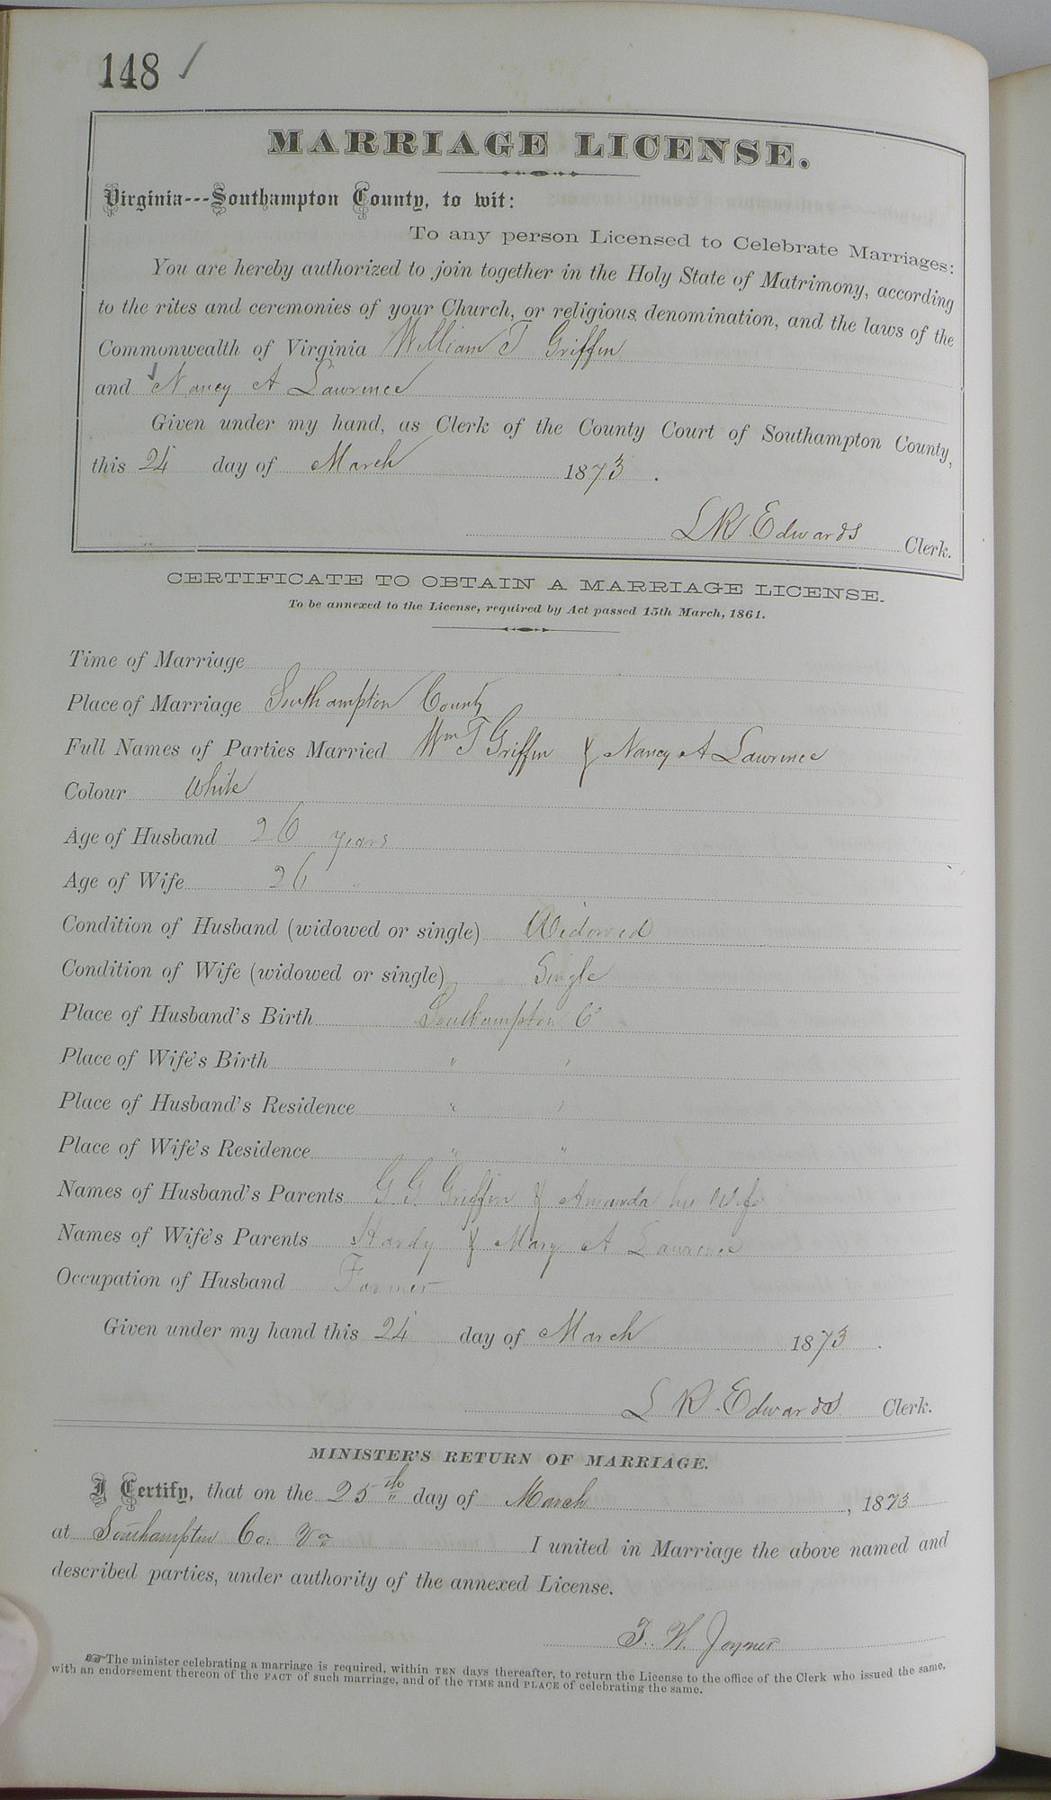 148 ✓
MARRIAGE LICENSE.
Virginia---Southampton County, to wit:
To any person Licensed to Celebrate Marriages:
You are hereby authorized to join together in the Holy State of Matrimony, according
to the rites and ceremonies of your Church, or religious denomination, and the laws of the
Commonwealth of Virginia William T Griffin
and Nancy A Lawrence
Given under my hand, as Clerk of the County Court of Southampton County,
this 24 day of March 1873.
L R Edwards Clerk.
CERTIFICATE TO OBTAIN A MARRIAGE LICENSE.
To be annexed to the License, required by Act passed 15th March, 1861.
Time of Marriage
Place of Marriage Southampton County
Full Names of Parties Married Wm T Griffin & Nancy A Lawrence
Colour White
Age of Husband 26 years
Age of Wife 26 "
Condition of Husband (widowed or single) Widowed
Condition of Wife (widowed or single) Single
Place of Husband's Birth Southampton Co
Place of Wife's Birth " "
Place of Husband's Residence " "
Place of Wife's Residence " "
Names of Husband's Parents G. G. Griffin & Amanda his Wife
Names of Wife's Parents Hardy & Mary A Lawrence
Occupation of Husband Farmer
Given under my hand this 24 day of March 1873.
L R. Edwards Clerk.
MINISTER'S RETURN OF MARRIAGE.
I Certify, that on the 25th day of March, 1873
at Southampton Co. Va I united in Marriage the above named and
described parties, under authority of the annexed License.
T. W. Joyner
☞The minister celebrating a marriage is required, within TEN days thereafter, to return the License to the office of the Clerk who issued the same,
with an endorsement thereon of the FACT of such marriage, and of the TIME and PLACE of celebrating the same.